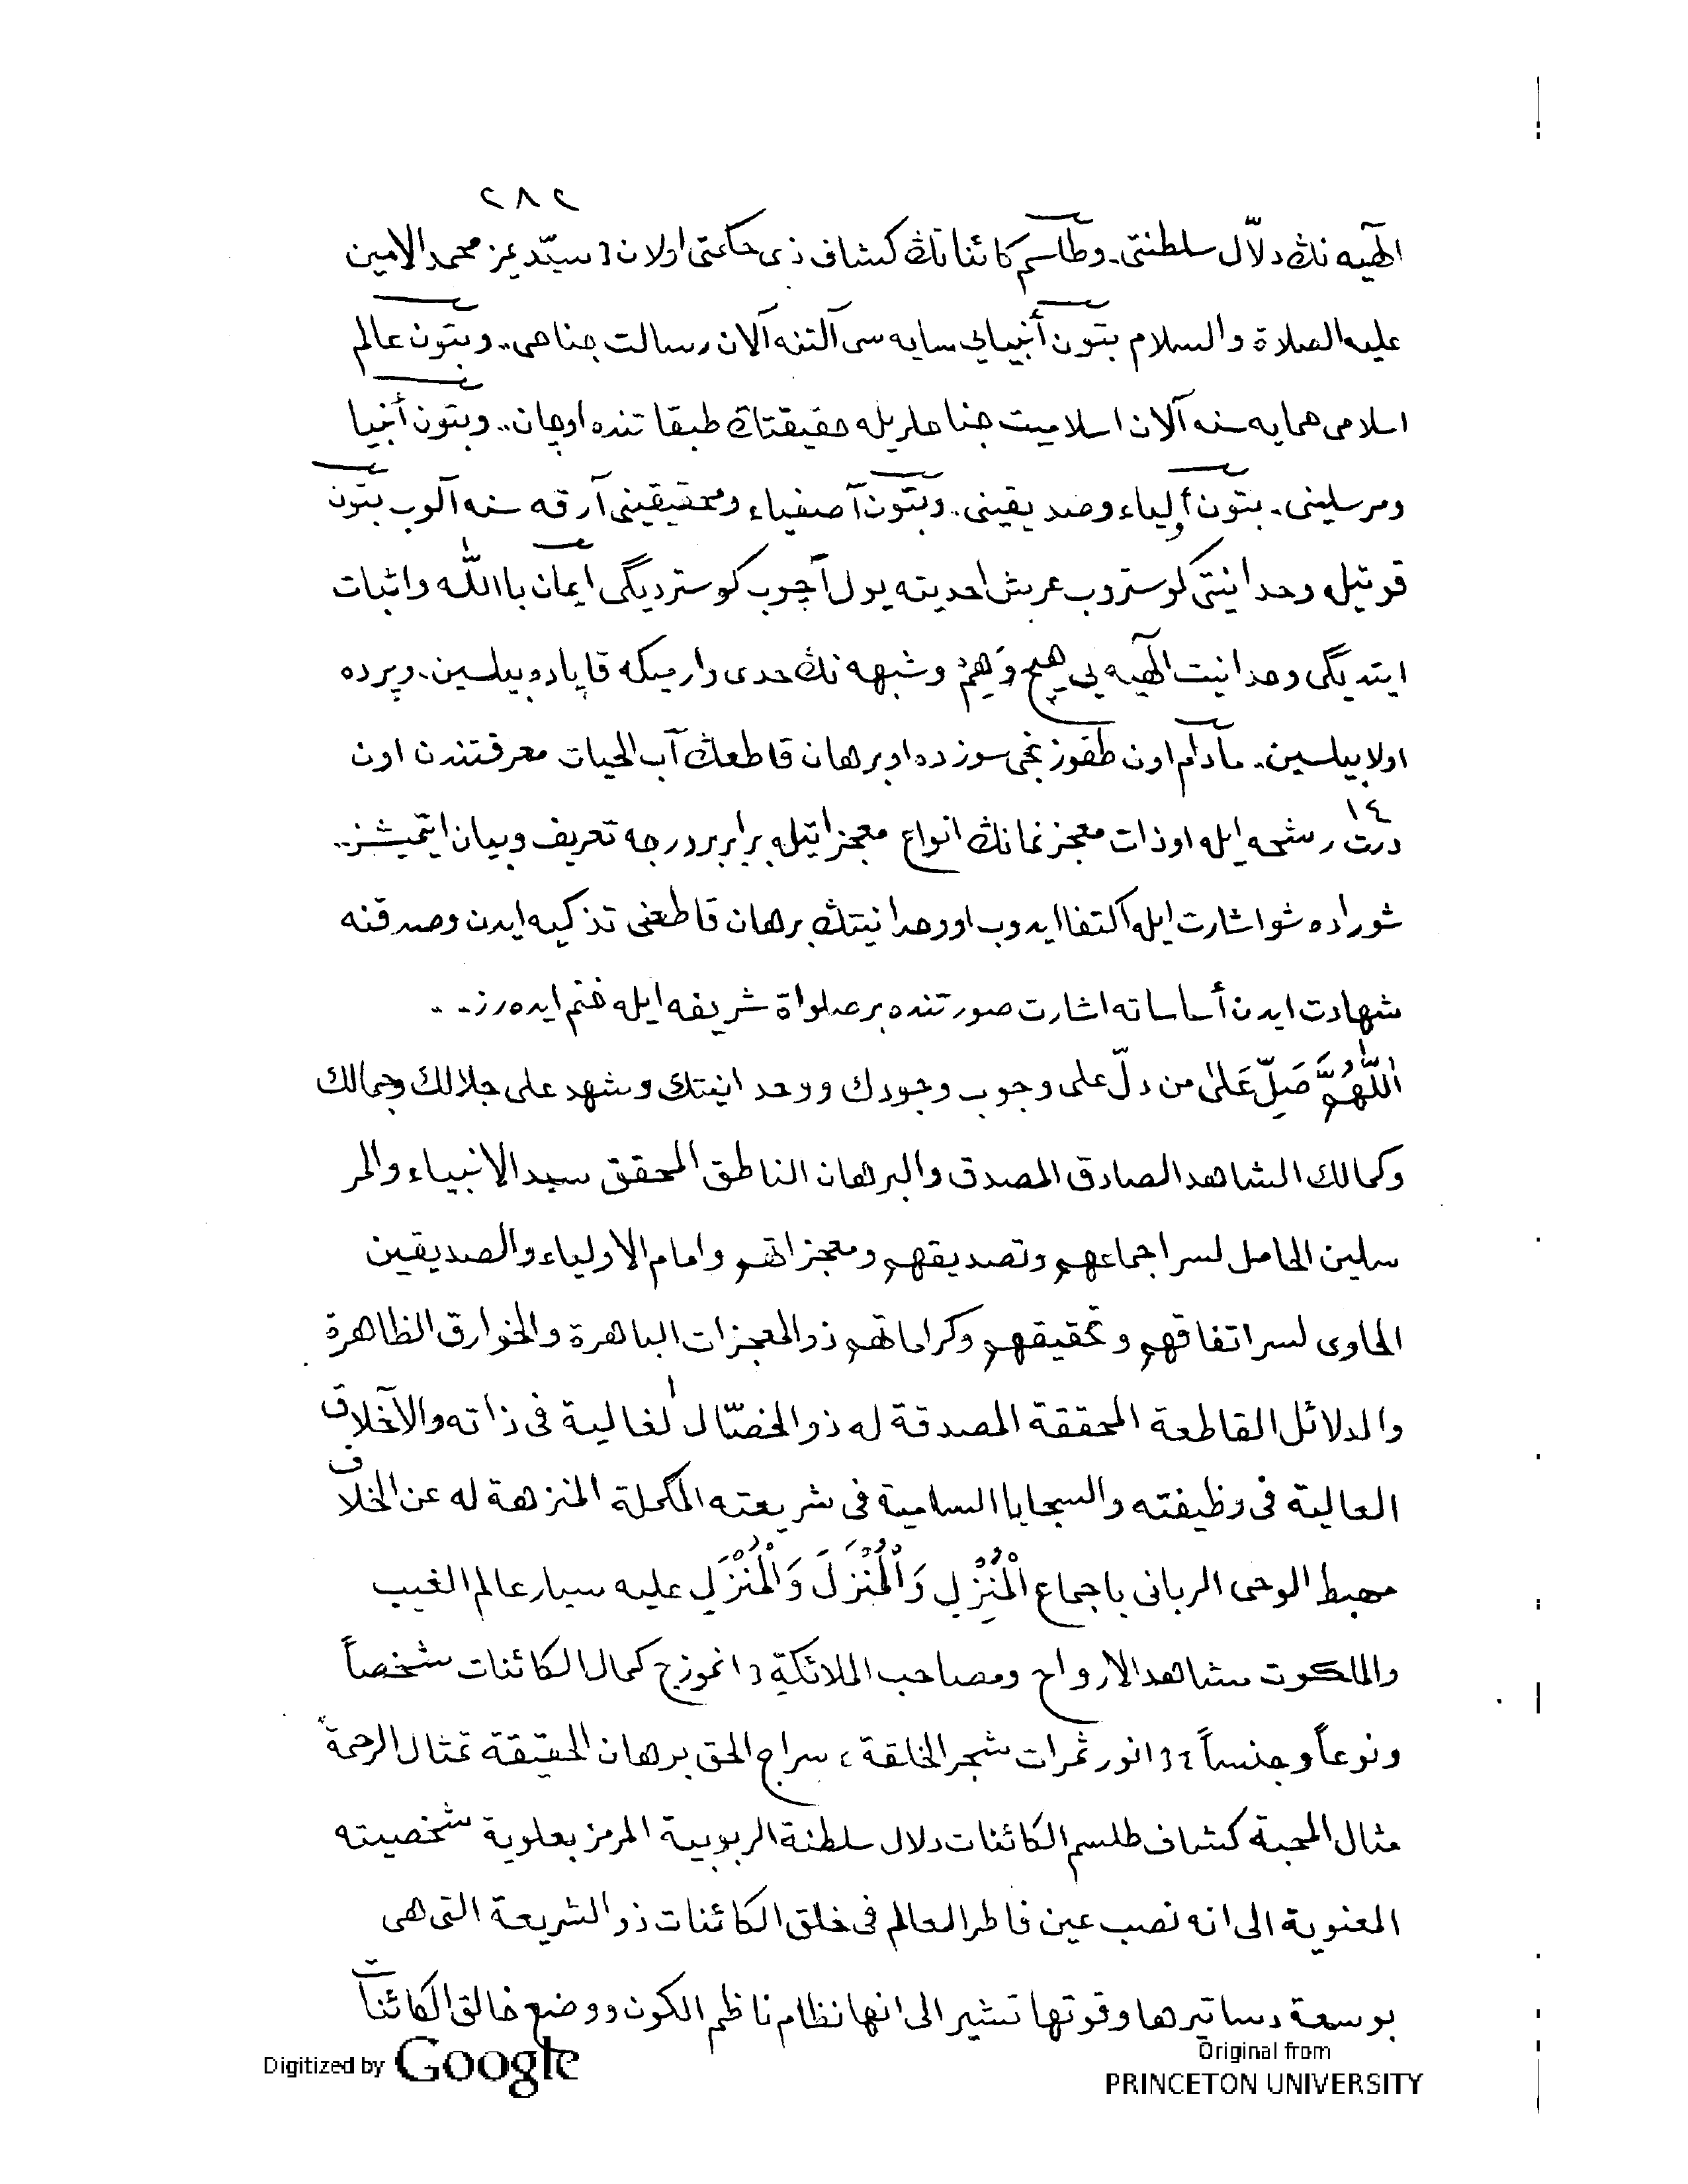 ٢٨٢
الٓهيه نڭ دلاّل سلطنتى. وطلسم كائناتڭ كشاف ذى حكمتى اولان سيّديمز محمد الامين
عليه الصلاة والسلام بتون أنبيايى سايه سى آلتنه آلان رسالت جناحى.. وبتون عالم
اسلامى همايه سنه آلان اسلاميت جناحلريله حقيقتڭ طبقاتنده اوچان.. وبتون أنبيا
ومرسلينى. بتون أولياء وصديقينى.. وبتون آصفياء ومحققينى آرقه سنه آلوب بتون
قوتيله وحدانيتى كوستروب عرش احديته يول آچوب كوسترديگى ايمان باالله واثبات
ايتديگى وحدانيت الٓهيه يى هيچ وَهِمْ وشبهه نڭ حدى وارميكه قاپادوبيلسين. وپرده
اولابيلسين.. مآدام اون طقوزنجى سوزده او برهان قاطعڭ آب الحيات معرفتندن اون
١٤
درت رشحه ايله اوذات معجزنمانڭ انواع معجزاتيله برابر بردرجه تعريف وبيان ايتميشز..
شوراده شو اشارت ايله اكتفا ايدوب او وحدانيتڭ برهان قاطعنى تذكيه ايدن وصدقنه
شهادت ايدن أساساته اشارت صورتنده بر صلواة شريفه ايله ختم ايده رز...
اَللّٰهُمَّ صَلِّ عَلىٰ من دلّ على وجوب وجودك ووحدانيتك وشهد على جلالك وجمالك
وكمالك الشاهد الصادق المصدق والبرهان الناطق المحقق سيد الانبياء والمر
سلين الحامل لسر اجماعهم وتصديقهم ومعجزاتهم وامام الاولياء والصديقين
الحاوى لسر اتفاقهم وتحقيقهم وكراماتهم ذو المعجزات الباهرة والخوارق الظاهرة
والدلائل القاطعة المحققة المصدقة له ذو الخصّال الغالية فى ذاته والآخلاق
العالية فى وظيفته والسجايا السامية فى شريعته المكملة المنزهة له عن الخلاف
مهبط الوحى الربانى باجماع الْمُنْزِلِ وَالْمُنْزَلَ وَالْمُنْزَلِ عليه سيار عالم الغيب
والملكوت مشاهد الارواح ومصاحب الملائكة انموزج كمال الكائنات شخصاً
ونوعاً وجنساً انور ثمرات شجر الخلقة، سراج الحق برهان الحقيقة تمثال الرحمة
مثال المحبة كشاف طلسم الكائنات دلال سلطنة الربوبية المرمز بعلوية شخصيته
المعنوية الى انه نصب عين فاطر العالم فى خلق الكائنات ذو الشريعة التى هى
بوسعة دساتيرها وقوتها تشير الى انها نظام ناظم الكون ووضع خالق الكائنات
Digitized by Google
Original from
PRINCETON UNIVERSITY